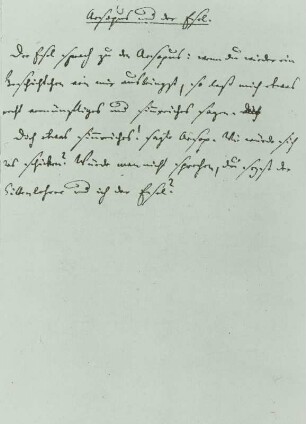 Aesopus und der Esel.
Der Esel sprach zu dem Aesopus: wenn du wieder ein
Geschichtchen von mir ausbringst, so laß mich etwas
recht vernünftiges und sinnreiches sagen.
Dich etwas sinnreiches! sagte Aesop. Wie würde sich
das schicken? Würde man nicht sprechen, du seyst der
Sittenlehrer und ich der Esel?